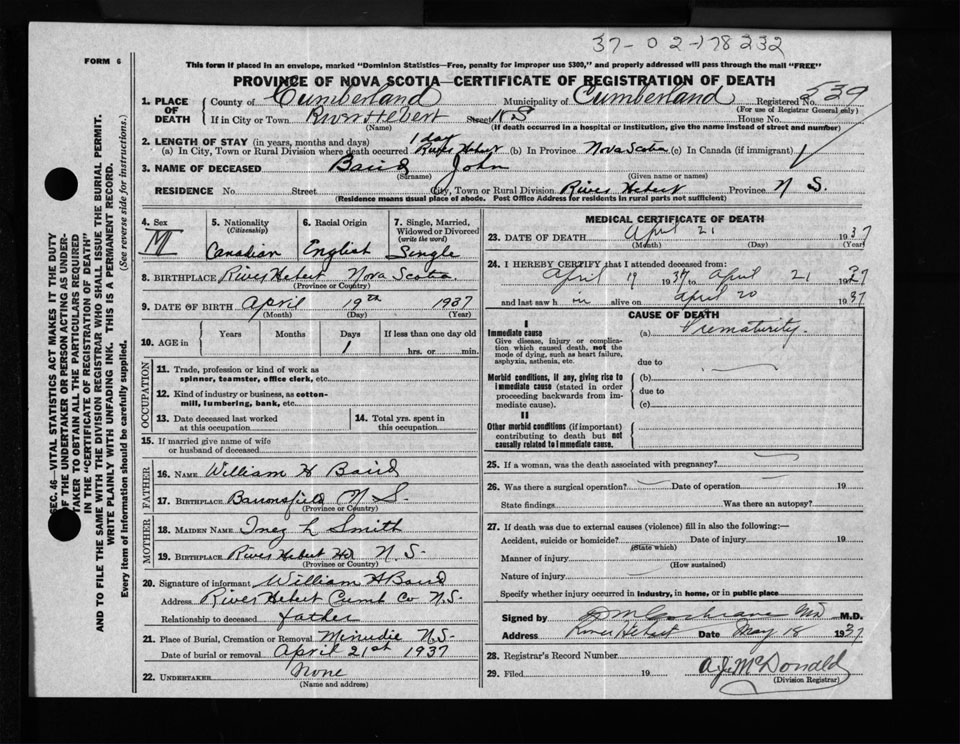 37-02-178232
FORM 6
This form if placed in an envelope, marked "Dominion Statistics—Free, penalty for improper use $300," and properly addressed will pass through the mail "FREE"
PROVINCE OF NOVA SCOTIA—CERTIFICATE OF REGISTRATION OF DEATH
1. PLACE OF DEATH
County of Cumberland Municipality of Cumberland Registered No. 539
(For use of Registrar General only)
If in City or Town River Hebert Street N S House No.
(Name) (If death occurred in a hospital or institution, give the name instead of street and number)
2. LENGTH OF STAY (in years, months and days) 1 day
(a) In City, Town or Rural Division where death occurred River Hebert (b) In Province Nova Scotia (c) In Canada (if immigrant)
3. NAME OF DECEASED Baird John
(Surname) (Given name or names)
RESIDENCE No Street City, Town or Rural Division River Hebert Province N S.
(Residence means usual place of abode. Post Office Address for residents in rural parts not sufficient)
4. Sex M
5. Nationality (Citizenship) Canadian
6. Racial Origin English
7. Single, Married, Widowed or Divorced (write the word) Single
8. BIRTHPLACE River Hebert Nova Scotia
(Province or Country)
9. DATE OF BIRTH April 19th 1937
(Month) (Day) (Year)
10. AGE in Years Months Days 1 If less than one day old
hrs. or min.
OCCUPATION
11. Trade, profession or kind of work as spinner, teamster, office clerk, etc.
12. Kind of industry or business, as cotton-mill, lumbering, bank, etc.
13. Date deceased last worked at this occupation
14. Total yrs. spent in this occupation
15. If married give name of wife or husband of deceased
FATHER
16. NAME William H Baird
17. BIRTHPLACE N S.
(Province or Country)
MOTHER
18. MAIDEN NAME Inez L Smith
19. BIRTHPLACE River Hebert N. S.
(Province or Country)
20. Signature of informant William H Baird
Address River Hebert Cumb Co N.S.
Relationship to deceased father
21. Place of Burial, Cremation or Removal Minudie N.S.
Date of burial or removal April 21st 1937
22. UNDERTAKER None
(Name and address)
MEDICAL CERTIFICATE OF DEATH
23. DATE OF DEATH April 21 1937
(Month) (Day) (Year)
24. I HEREBY CERTIFY that I attended deceased from:
April 19 1937 to April 21 1937
and last saw h im alive on April 20 1937
CAUSE OF DEATH
I
Immediate cause
Give disease, injury or complication which caused death, not the mode of dying, such as heart failure, asphyxia, asthenia, etc.
(a) Prematurity.
due to
Morbid conditions, if any, giving rise to immediate cause (stated in order proceeding backwards from immediate cause).
(b)
due to
(c)
II
Other morbid conditions (if important) contributing to death but not causally related to immediate cause.
25. If a woman, was the death associated with pregnancy?
26. Was there a surgical operation? Date of operation 19
State findings Was there an autopsy?
27. If death was due to external causes (violence) fill in also the following:—
Accident, suicide or homicide? Date of injury 19
(State which)
Manner of injury
(How sustained)
Nature of injury
Specify whether injury occurred in industry, in home, or in public place
Signed by Cochrane MD M.D.
Address River Hebert Date May 18 1937
28. Registrar's Record Number
29. Filed 19 A.J. McDonald
(Division Registrar)
SEC. 46—VITAL STATISTICS ACT MAKES IT THE DUTY
OF THE UNDERTAKER OR PERSON ACTING AS UNDER-
TAKER TO OBTAIN ALL THE PARTICULARS REQUIRED
IN THE "CERTIFICATE OF REGISTRATION OF DEATH"
AND TO FILE THE SAME WITH THE DIVISION REGISTRAR WHO SHALL ISSUE THE BURIAL PERMIT.
WRITE PLAINLY WITH UNFADING INK. THIS IS A PERMANENT RECORD.
Every item of information should be carefully supplied. (See reverse side for instructions.)